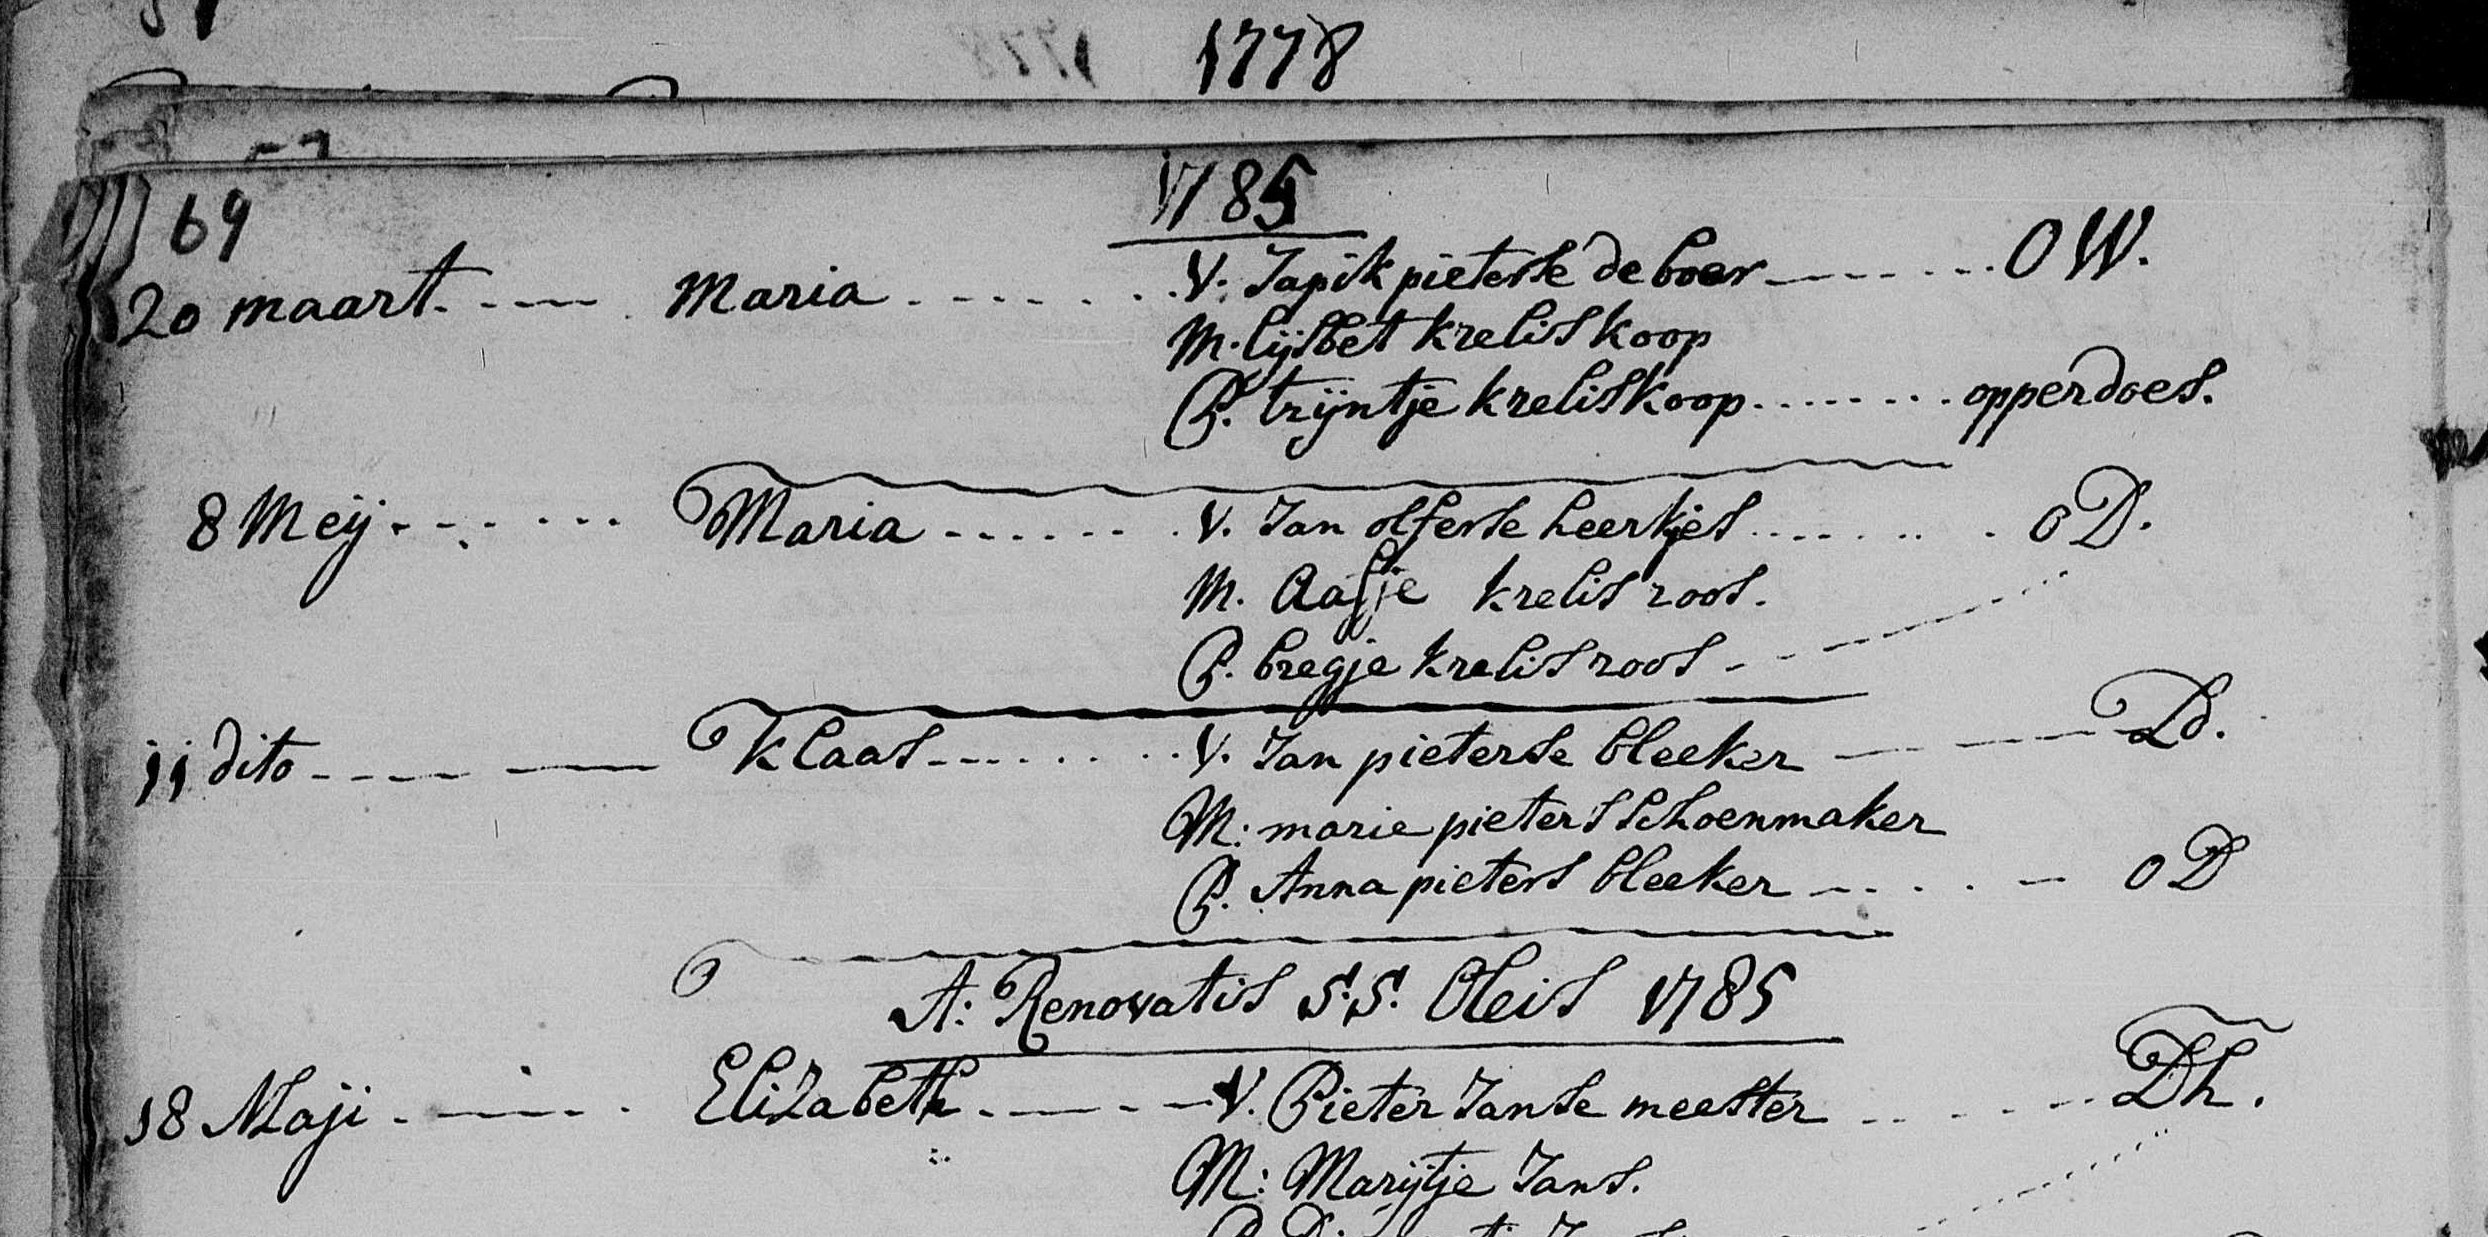 1778
1785
69
20 maart. Maria V. Japik pieterse de boer O W.
M. lijsbet krelis koop
P. trijntje krelis koop opperdoes.
8 Meij Maria V. Jan olferse heerkjes o D.
M. Aafje krelis roos.
P. bregje krelis roos
11 dito Klaas V. Jan pieterse bleeker Ld.
M: marie pieters schoenmaker
P. Anna pieters bleeker o D
A: Renovatis S.S. Oleis 1785
18 Maji Elizabeth V. Pieter Janse meester Dh.
M: Marijtje Jans.